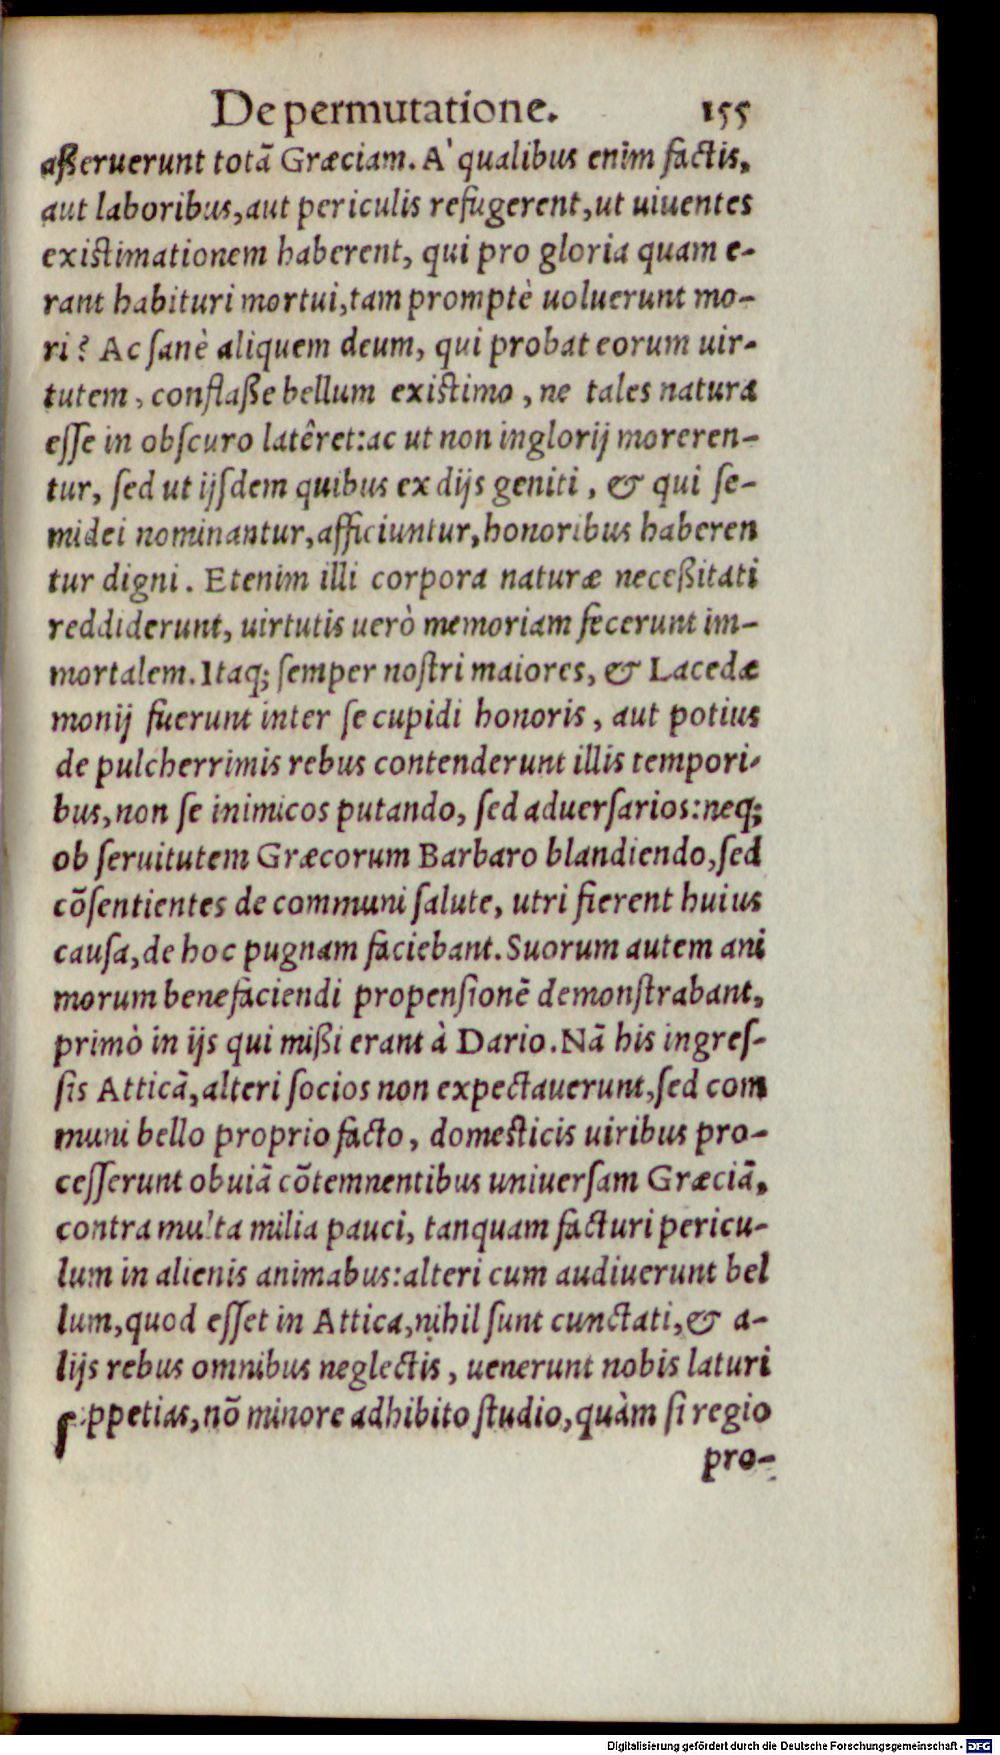 De permutatione. 155
aßeruerunt totā Græciam. A' qualibus enim factis,
aut laboribus, aut periculis refugerent, ut uiuentes
existimationem haberent, qui pro gloria quam e-
rant habituri mortui, tam promptè uoluerunt mo-
ri? Ac sanè aliquem deum, qui probat eorum uir-
tutem, conflaße bellum existimo, ne tales natura
esse in obscuro latêret: ac ut non inglorij moreren-
tur, sed ut ijsdem quibus ex dijs geniti, & qui se-
midei nominantur, afficiuntur, honoribus haberen
tur digni. Etenim illi corpora naturæ neceßitati
reddiderunt, uirtutis uerò memoriam fecerunt im-
mortalem. Itaq; semper nostri maiores, & Lacedæ
monij fuerunt inter se cupidi honoris, aut potius
de pulcherrimis rebus contenderunt illis tempori-
bus, non se inimicos putando, sed aduersarios: neq;
ob seruitutem Græcorum Barbaro blandiendo, sed
cōsentientes de communi salute, utri fierent huius
causa, de hoc pugnam faciebant. Suorum autem ani
morum benefaciendi propensionē demonstrabant,
primò in ijs qui mißi erant à Dario. Nā his ingres-
sis Atticā, alteri socios non expectauerunt, sed com
muni bello proprio facto, domesticis uiribus pro-
cesserunt obuiā cōtemnentibus uniuersam Græciā,
contra multa milia pauci, tanquam facturi pericu-
lum in alienis animabus: alteri cum audiuerunt bel
lum, quod esset in Attica, nihil sunt cunctati, & a-
lijs rebus omnibus neglectis, uenerunt nobis laturi
suppetias, nō minore adhibito studio, quàm si regio
pro-
Digitalisierung gefördert durch die Deutsche Forschungsgemeinschaft - DFG